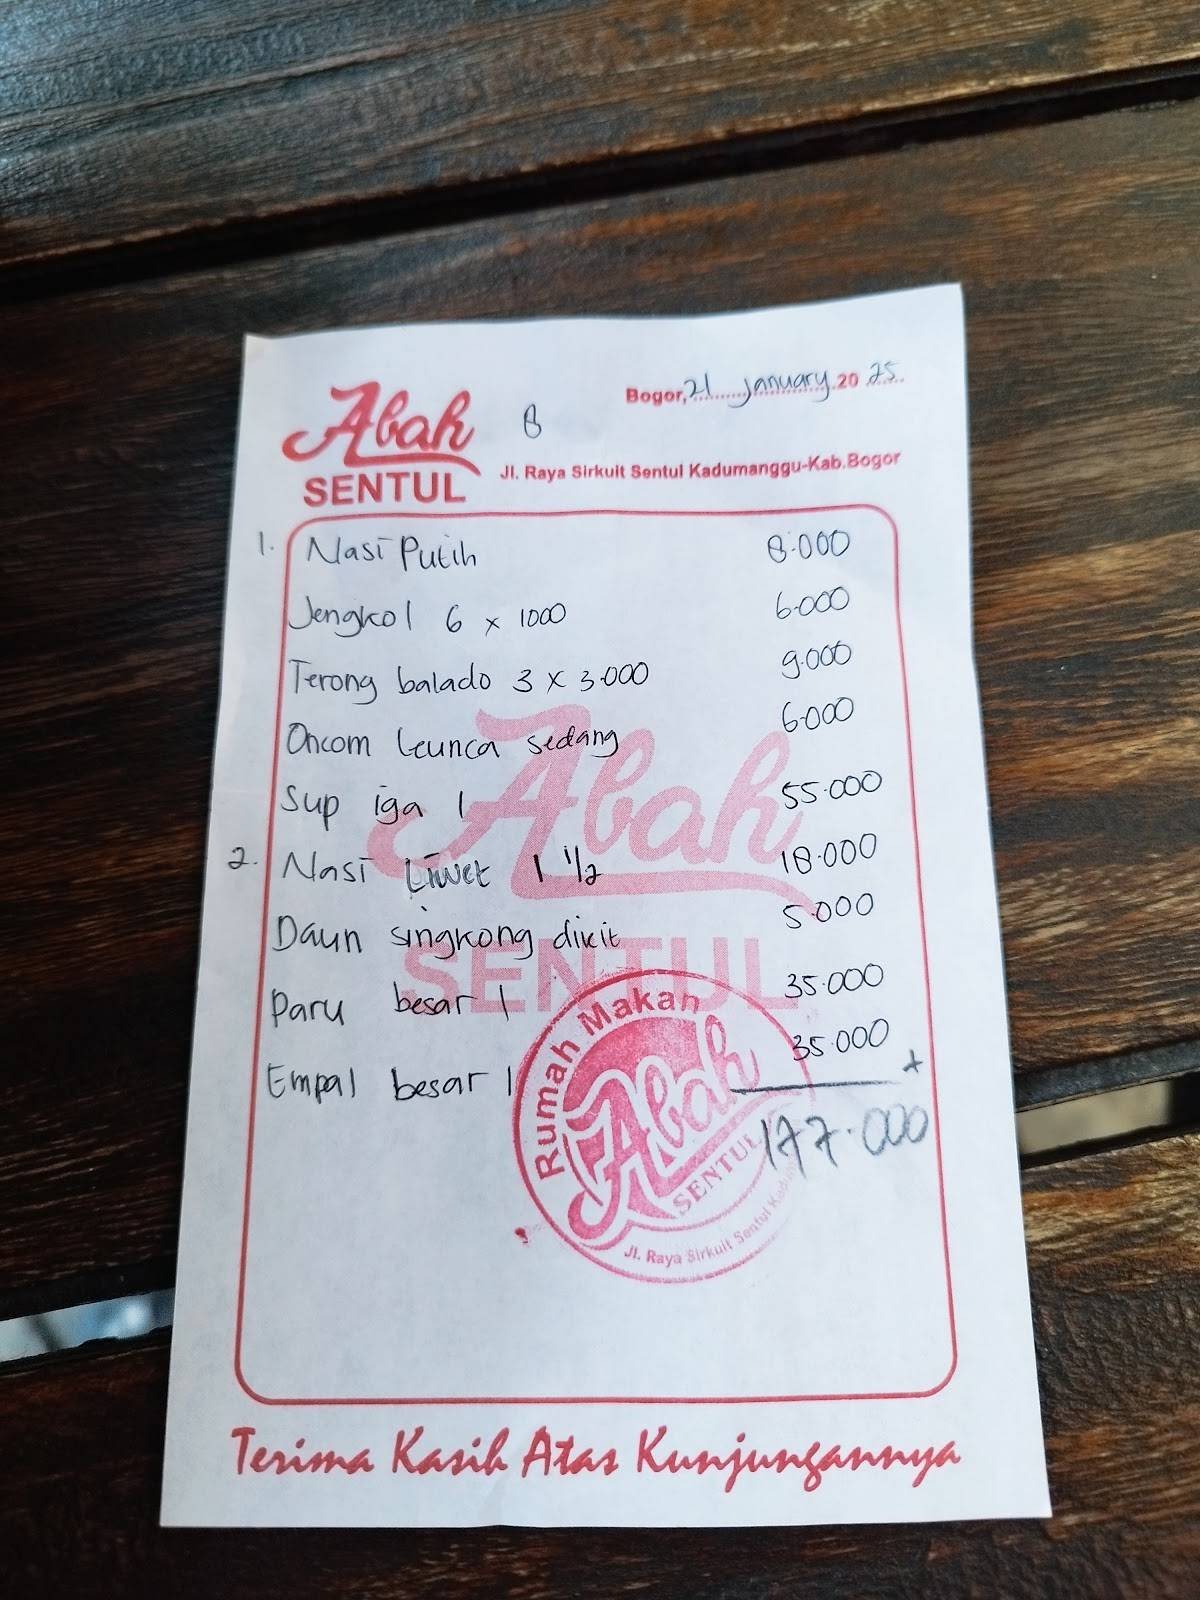 Abah
SENTUL
8
Bogor, 21 january 20 25
Jl. Raya Sirkuit Sentul Kadumanggu-Kab.Bogor
1. Nasi Putih 8.000
Jengkol 6 x 1000 6.000
Terong balado 3 x 3.000 9.000
Oncom leunca sedang 6.000
Sup iga 1 55.000
2. Nasi Liwet 1 1/2 18.000
Daun singkong dikit 5.000
Paru besar 1 35.000
Empal besar 1 35.000 +
177.000
Abah
SENTUL
Rumah Makan
Abah
SENTUL
Jl. Raya Sirkuit Sentul
Terima Kasih Atas Kunjungannya